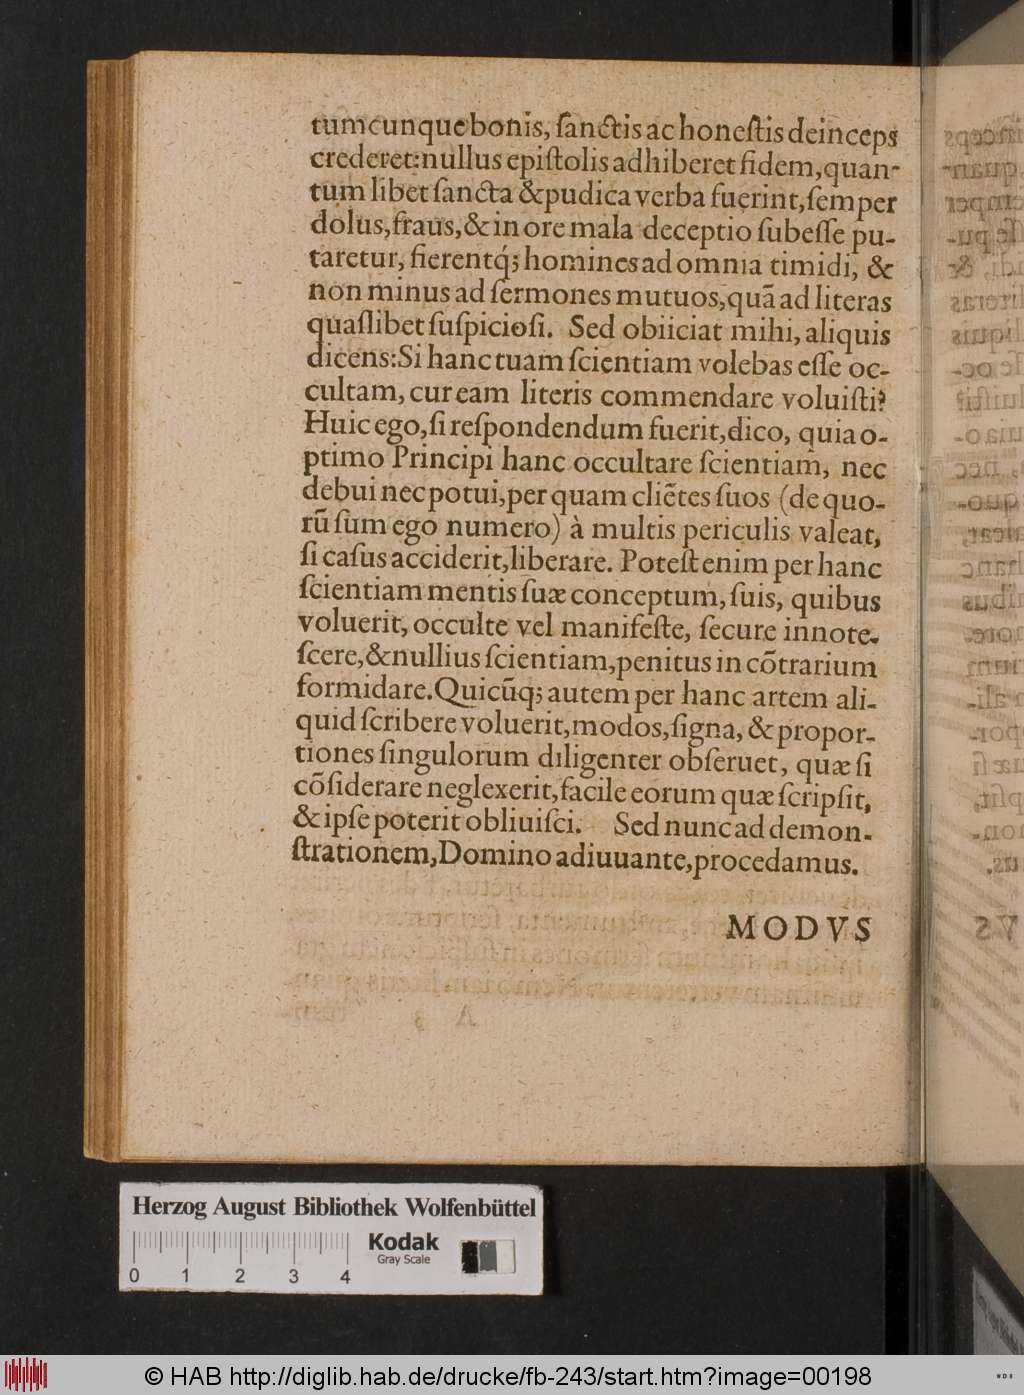 tumcunque bonis, ſanctis ac honeſtis deinceps
crederet: nullus epiſtolis adhiberet fidem, quan-
tum libet ſancta & pudica verba fuerint, ſemper
dolus, fraus, & in ore mala deceptio ſubeſſe pu-
taretur, fierentq́; homines ad omnia timidi, &
non minus ad ſermones mutuos, quā ad literas
quaſlibet ſuſpicioſi. Sed obiiciat mihi, aliquis
dicens: Si hanc tuam ſcientiam volebas eſſe oc-
cultam, cur eam literis commendare voluiſti?
Huic ego, ſi reſpondendum fuerit, dico, quia o-
ptimo Principi hanc occultare ſcientiam, nec
debui nec potui, per quam cliẽtes ſuos (de quo-
rũ ſum ego numero) à multis periculis valeat,
ſi caſus acciderit, liberare. Poteſt enim per hanc
ſcientiam mentis ſuæ conceptum, ſuis, quibus
voluerit, occulte vel manifeſte, ſecure innote-
ſcere, & nullius ſcientiam, penitus in cõtrarium
formidare. Quicũq; autem per hanc artem ali-
quid ſcribere voluerit, modos, ſigna, & propor-
tiones ſingulorum diligenter obſeruet, quæ ſi
cõſiderare neglexerit, facile eorum quæ ſcripſit,
& ipſe poterit obliuiſci. Sed nunc ad demon-
ſtrationem, Domino adiuuante, procedamus.
MODVS
Herzog August Bibliothek Wolfenbüttel
Kodak
Gray Scale
0 1 2 3 4
© HAB http://diglib.hab.de/drucke/fb-243/start.htm?image=00198